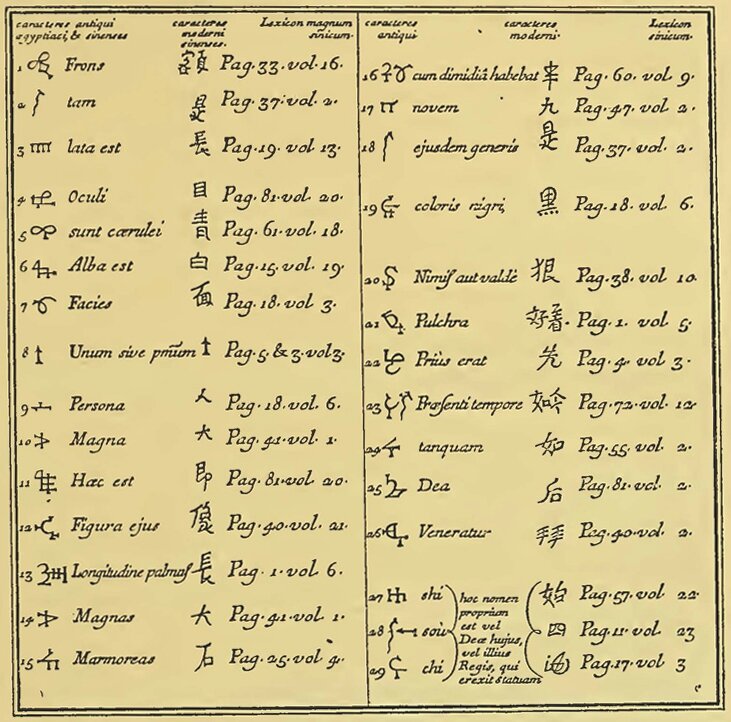 caracteres antiqui egyptiaci, & sinenses
caracteres moderni sinenses.
Lexicon magnum sinicum.
1 Frons 額 Pag. 33. vol. 16.
2 tam 是 Pag. 37. vol. 2.
3 lata est 長 Pag. 19. vol. 13.
4 Oculi 目 Pag. 81. vol. 20.
5 sunt cærulei 青 Pag. 61. vol. 18.
6 Alba est 白 Pag. 15. vol. 19.
7 Facies 面 Pag. 18. vol. 3.
8 Unum sive prīum Pag. 5. & 3. vol 3.
9 Persona 人 Pag. 18. vol. 6.
10 Magna 大 Pag. 41. vol. 1.
11 Hæc est 即 Pag. 81. vol. 20.
12 Figura ejus Pag. 40. vol. 21.
13 Longitudine palmas 長 Pag. 1. vol. 6.
14 Magnas 大 Pag. 41. vol. 1.
15 Marmoreas 石 Pag. 25. vol. 9.
caracteres antiqui
caracteres moderni.
Lexicon sinicum.
16 cum dimidiâ habebat Pag. 60. vol. 9.
17 novem 九 Pag. 47. vol. 2.
18 ejusdem generis 是 Pag. 37. vol. 2.
19 coloris nigri, 黑 Pag. 18. vol. 6.
20 Nimis aut valdè 狠 Pag. 38. vol. 10.
21 Pulchra 好看. Pag. 1. vol. 5.
22 Priùs erat 先 Pag. 4. vol. 3.
23 Præsenti tempore 如今 Pag. 72. vol. 12.
24 tanquam 如 Pag. 55. vol. 2.
25 Dea 后 Pag. 81. vol. 2.
26 Veneratur 拜 Pag. 40. vol. 2.
27 shi 始 Pag. 57. vol 22.
28 soù 四 Pag. 11. vol 23
29 chi Pag. 17. vol 3
hoc nomen
proprium
est vel
Deæ hujus,
vel illius
Regis, qui
erexit statuam